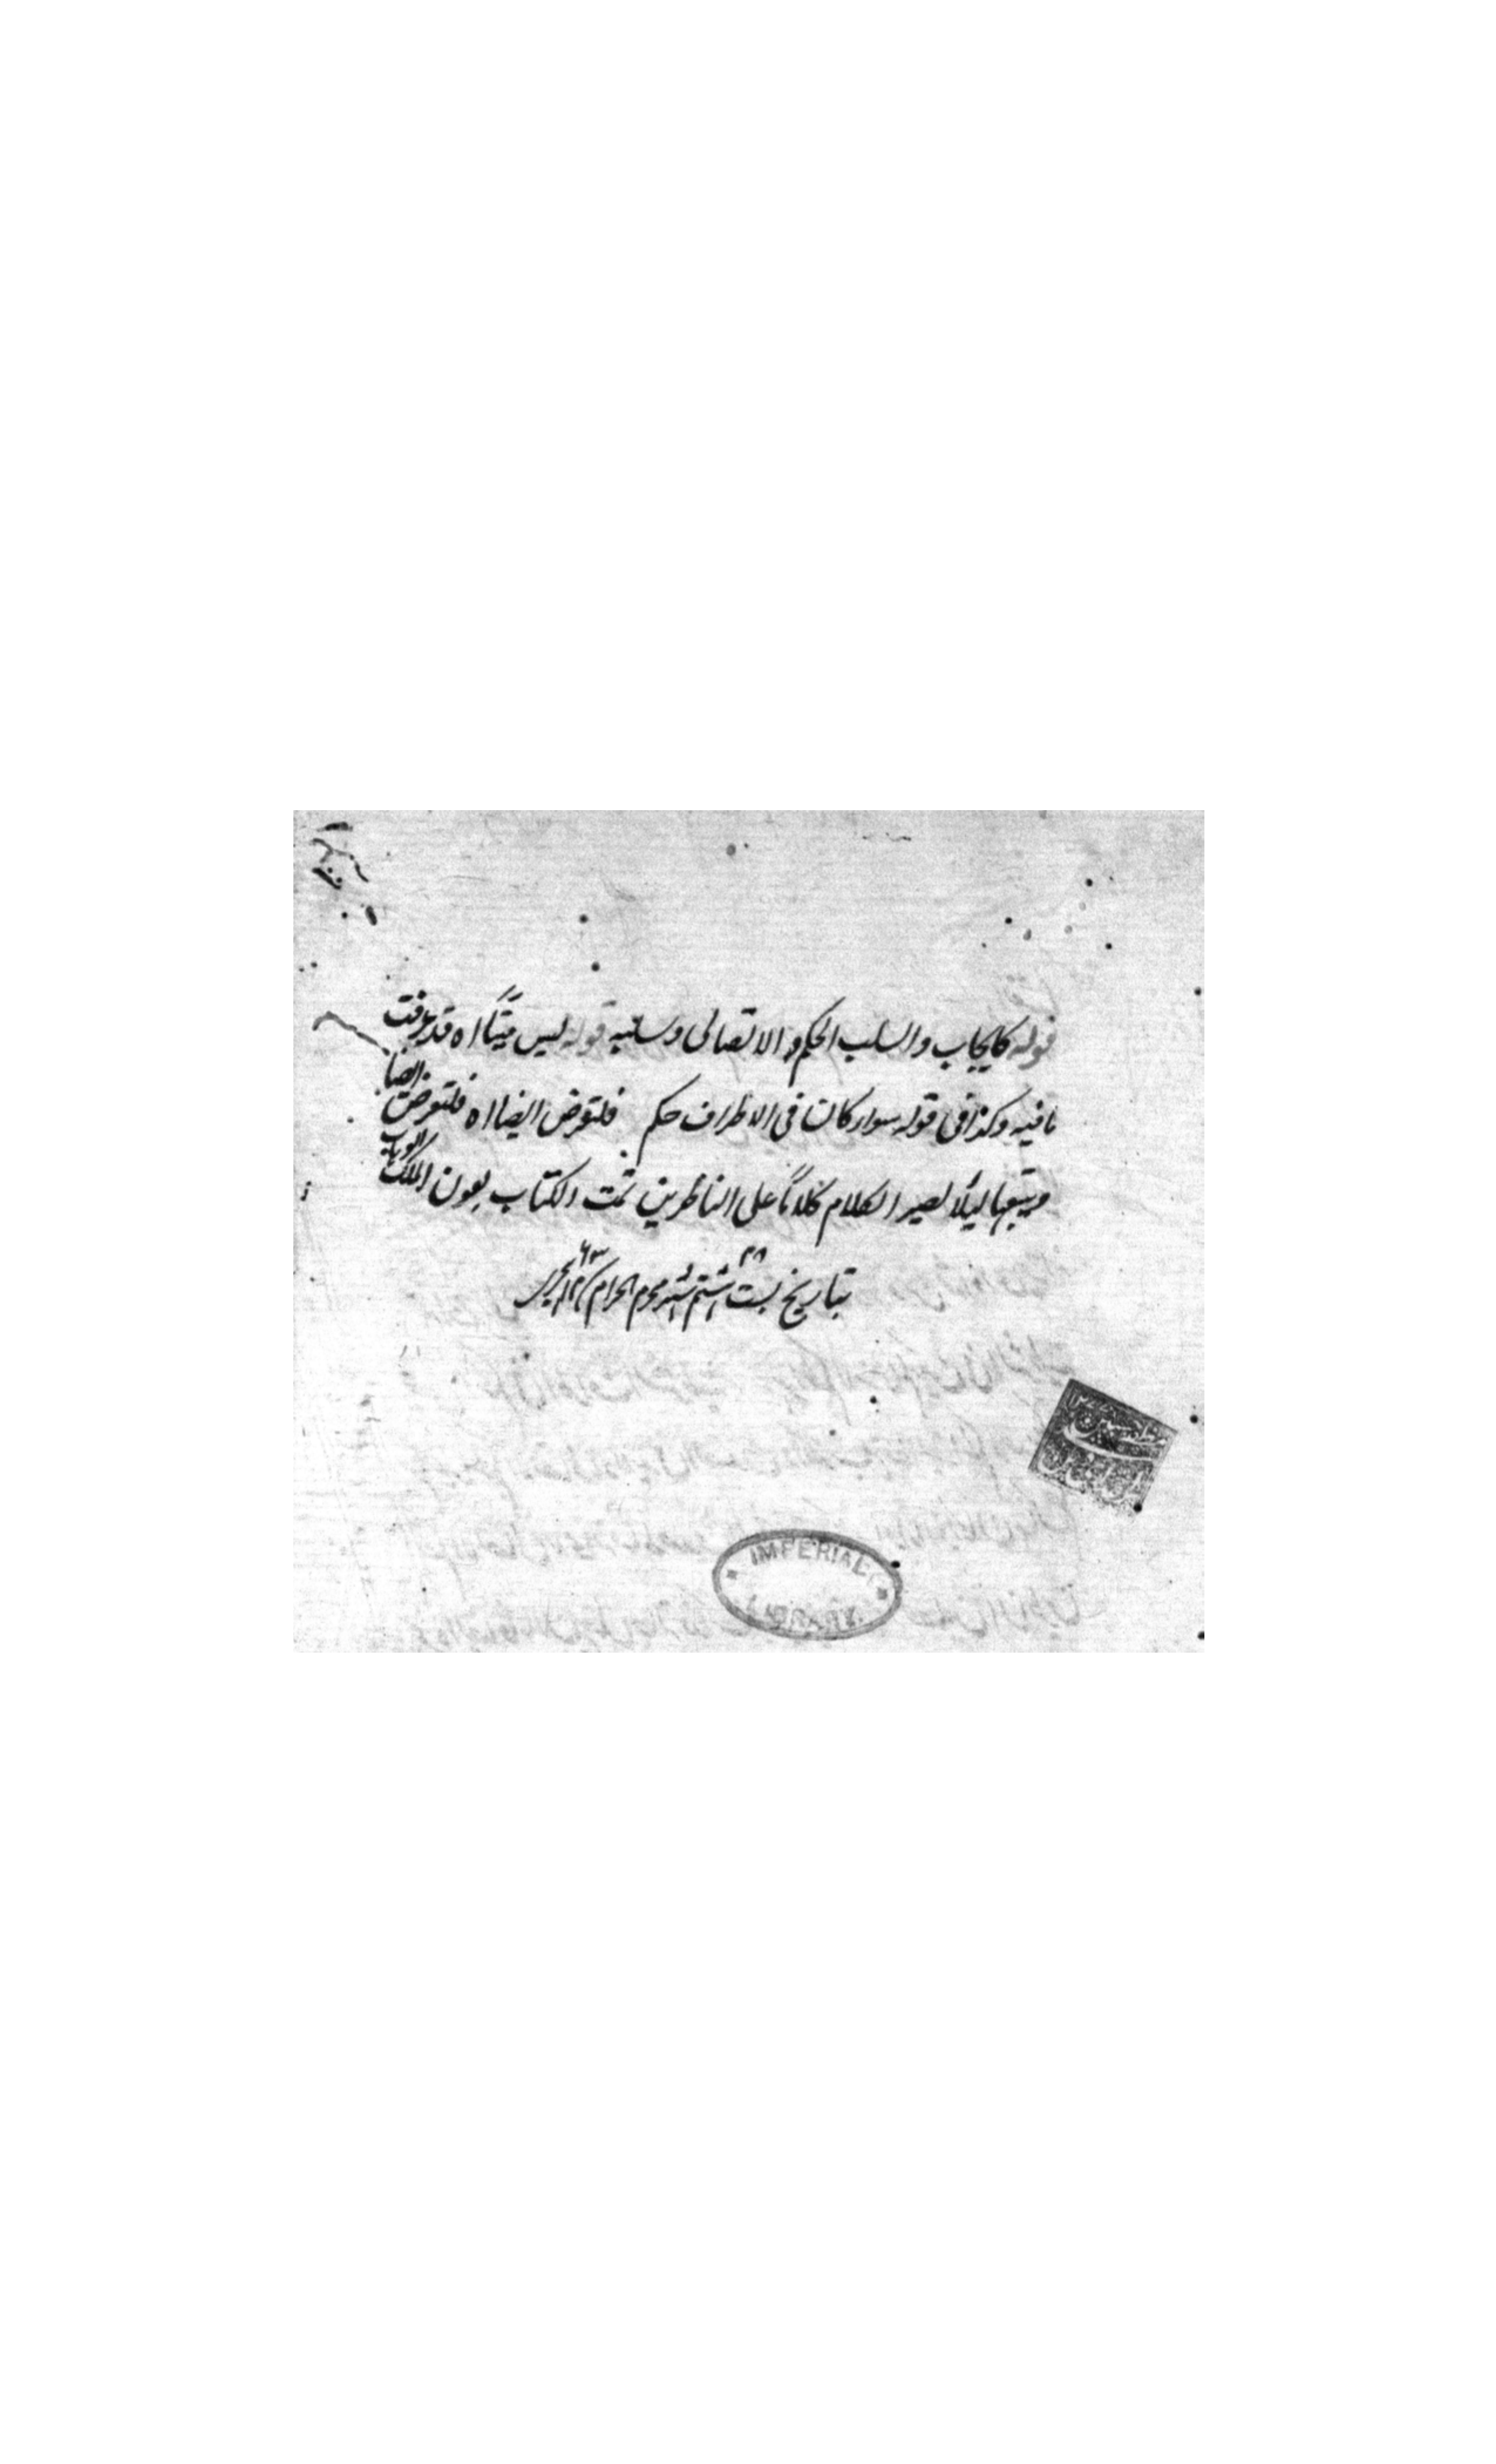 قوله كايجاب والسلب الحكم والاتصالى وسلبه قوله ليس ميتا اه قد عرفت
ما فيه وكذا فى قوله سواء كان فى الاطراف حكم فلتعرض ايضا اه فلتعرض ايضا
ويتبعها ليلا يصير الكلام كلاما على الناظرين تمت الكتاب بعون الملك الوهاب
۲۸ ۶۳
بتاريخ بست هشتم شهر محرم الحرام
IMPERIAL
LIBRARY.